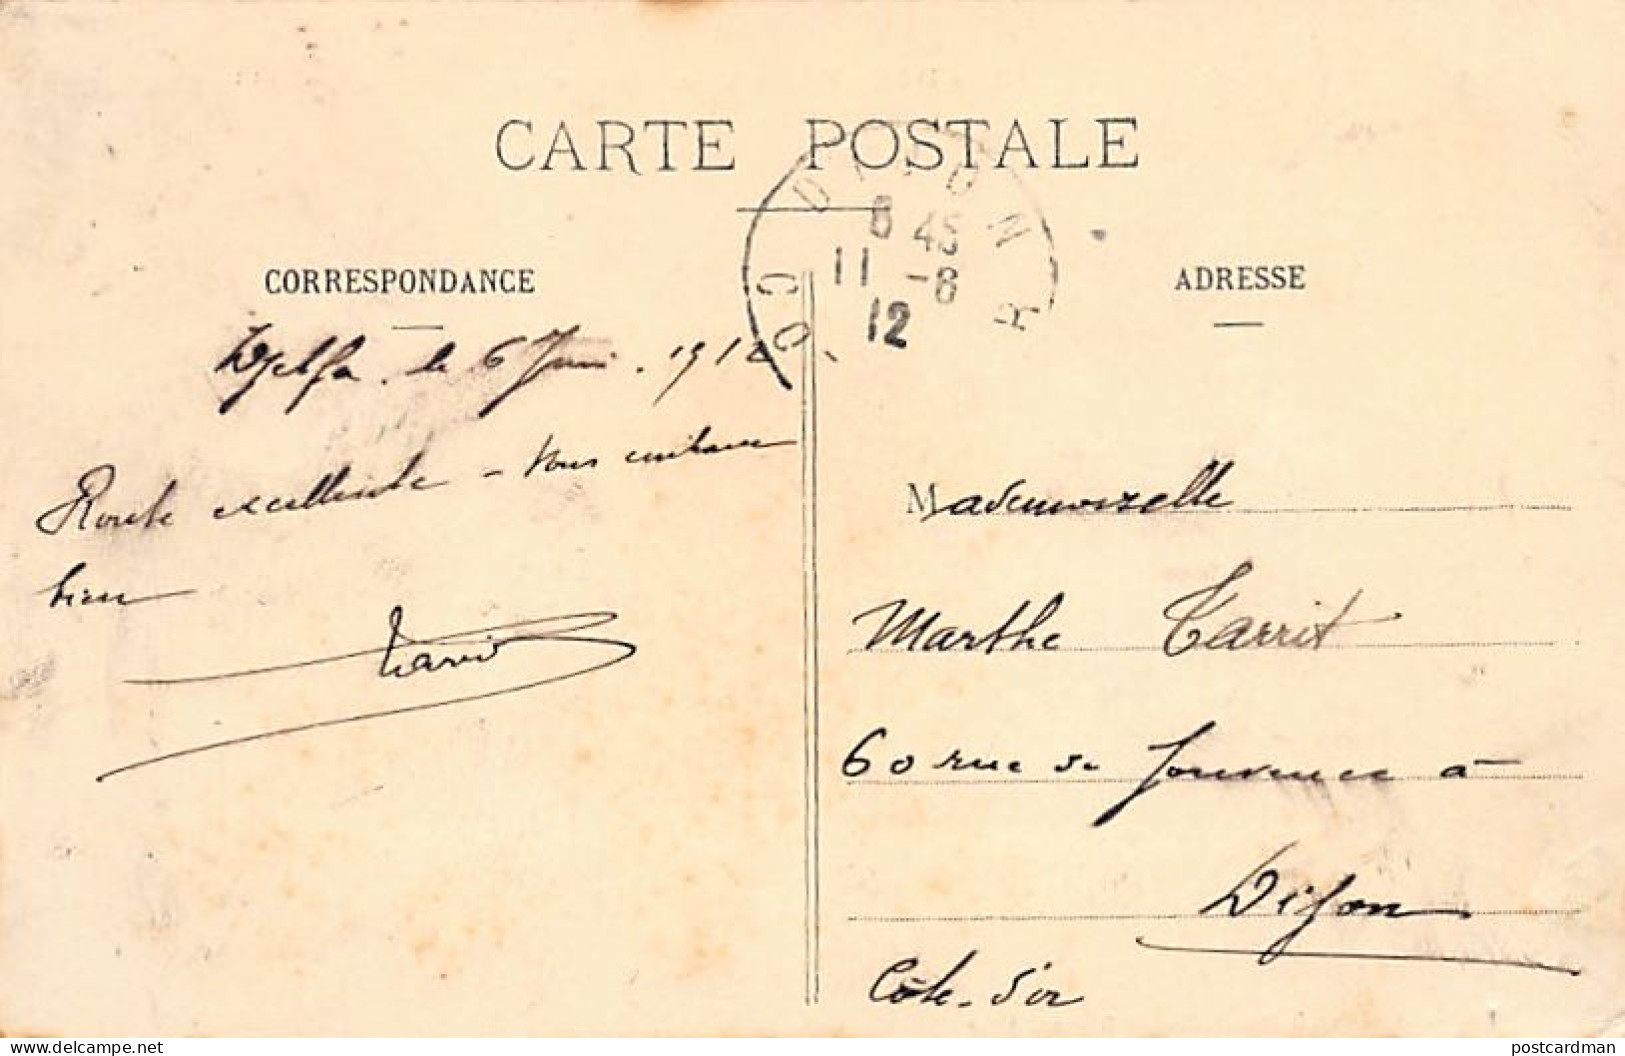 CARTE POSTALE
DIJON R
8 45
11 -6
12
CO
CORRESPONDANCE
ADRESSE
Djelfa. le 6 Juin. 1912
Route excellente - Nous
bien
Tarrit
Mademoiselle
Marthe Tarrit
60 rue de Jouvence à
Dijon
Côte-d'or
delcampe.net
postcardman